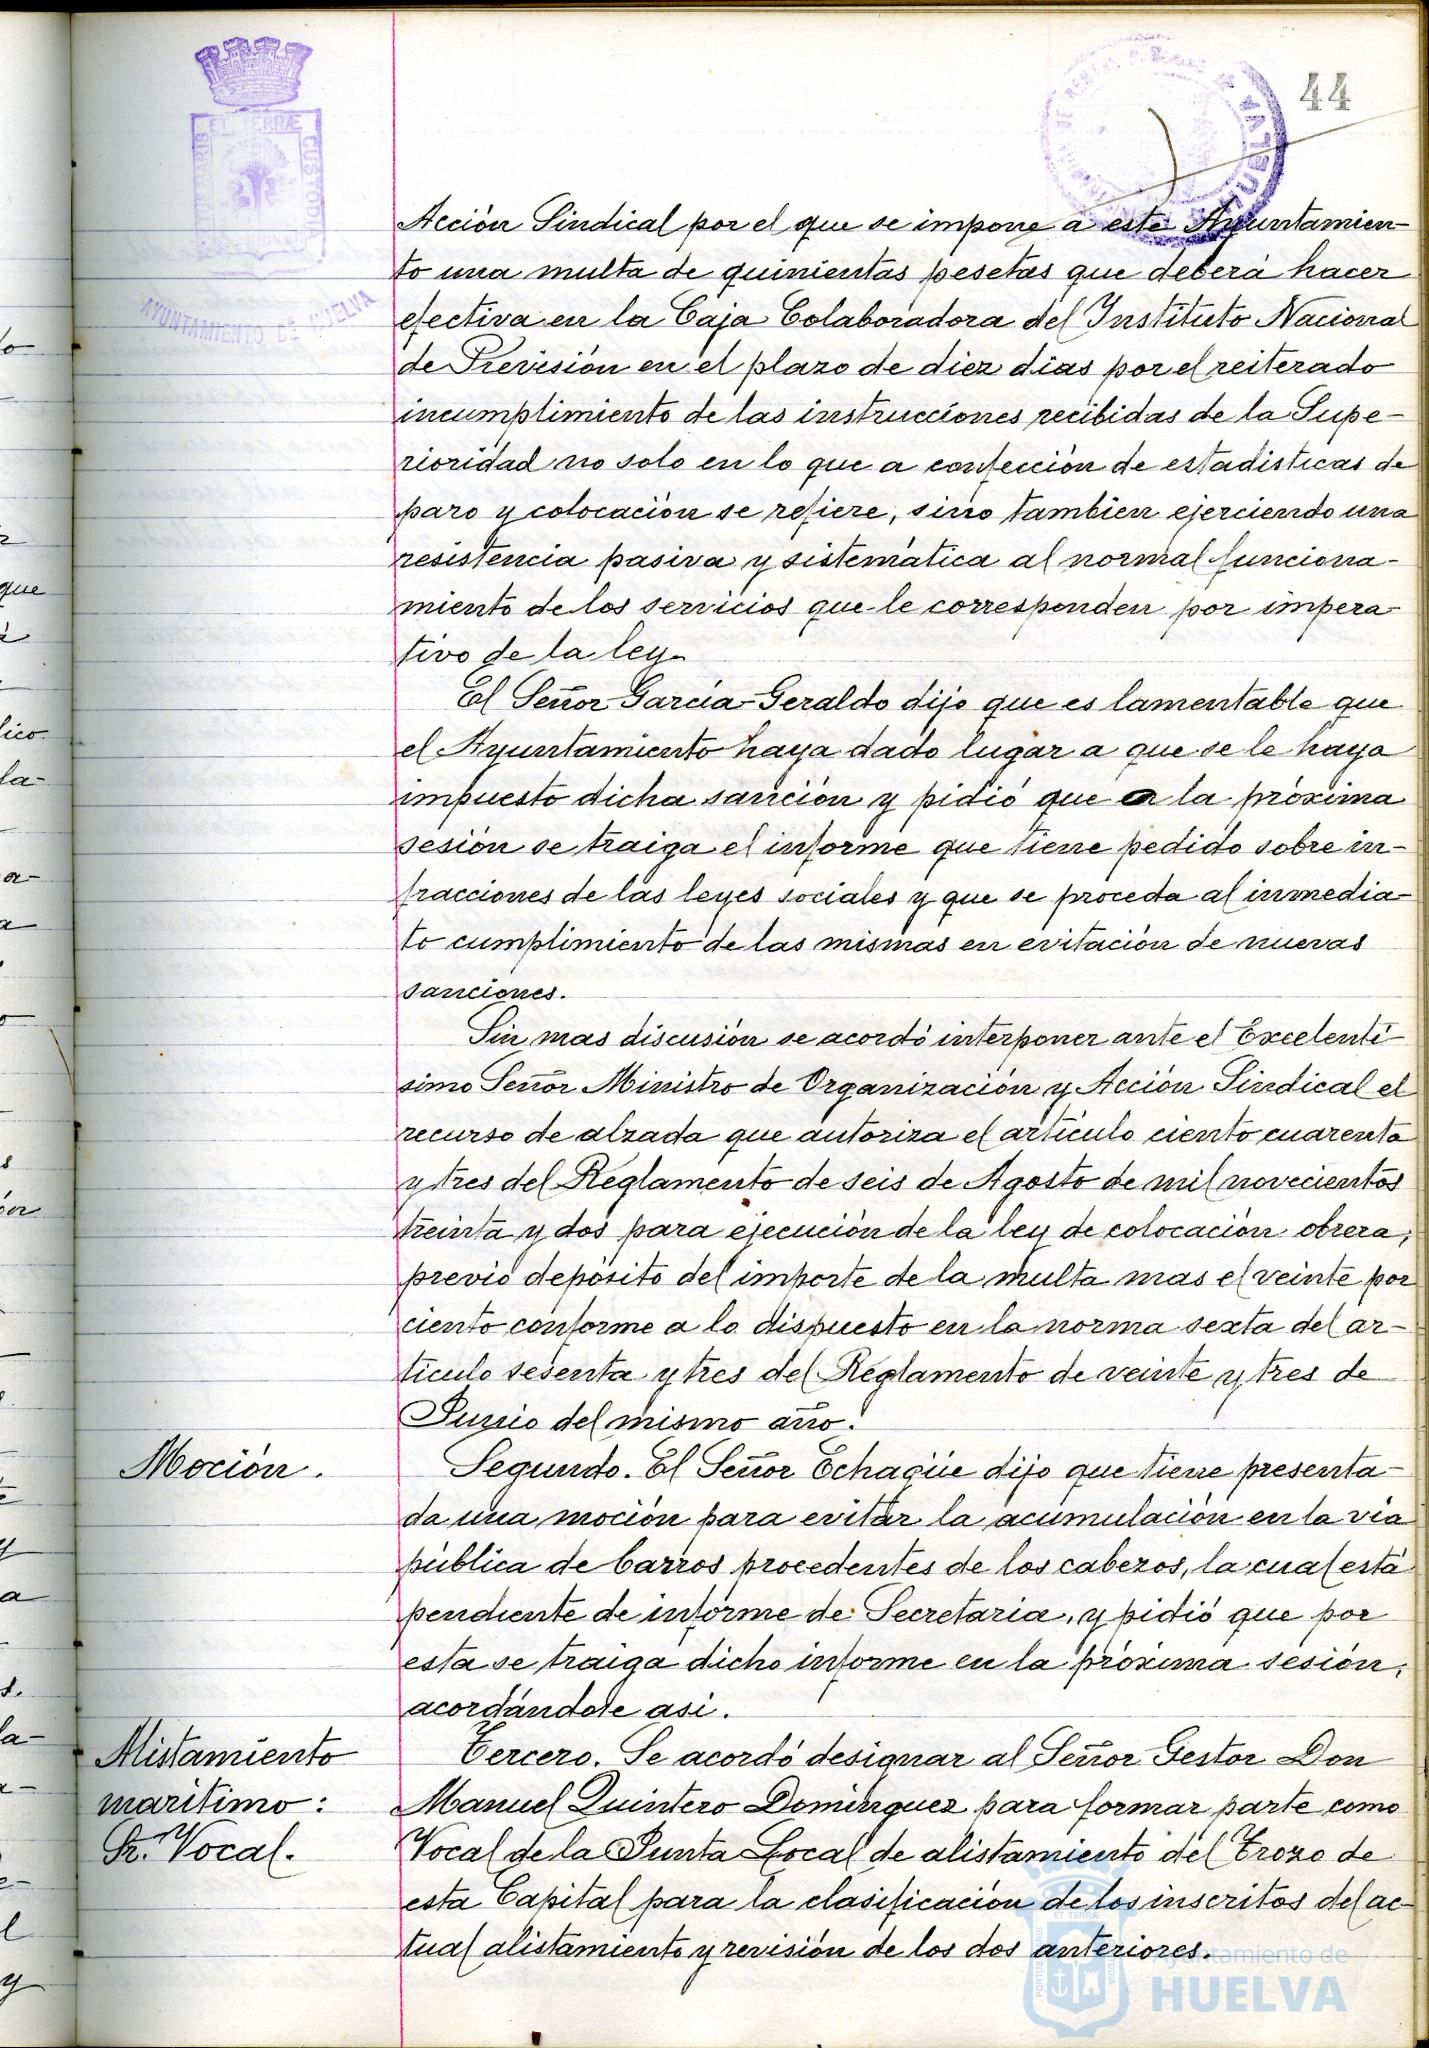 44
AYUNTAMIENTO DE HUELVA
Acción Sindical por el que se impone a este Ayuntamien-
to una multa de quinientas pesetas que deberá hacer
efectiva en la Caja Colaboradora del Instituto Nacional
de Previsión en el plazo de diez dias por el reiterado
incumplimiento de las instrucciones recibidas de la Supe-
rioridad no solo en lo que a confección de estadisticas de
paro y colocación se refiere, sino tambien ejerciendo una
resistencia pasiva y sistemática al normal funciona-
miento de los servicios que le corresponden por impera-
tivo de la ley.
El Señor García-Geraldo dijo que es lamentable que
el Ayuntamiento haya dado lugar a que se le haya
impuesto dicha sanción y pidió que a la próxima
sesión se traiga el informe que tiene pedido sobre in-
fracciones de las leyes sociales y que se proceda al inmedia-
to cumplimiento de las mismas en evitación de nuevas
sanciones.
Sin mas discusión se acordó interponer ante el Excelentí-
simo Señor Ministro de Organización y Acción Sindical el
recurso de alzada que autoriza el artículo ciento cuarenta
y tres del Reglamento de seis de Agosto de mil novecientos
treinta y dos para ejecución de la ley de colocación obrera,
previo depósito del importe de la multa mas el veinte por
ciento conforme a lo dispuesto en la norma sexta del ar-
tículo sesenta y tres del Reglamento de veinte y tres de
Junio del mismo año.
Moción.
Segundo. El Señor Echagüe dijo que tiene presenta-
da una moción para evitar la acumulación en la vía
pública de barros procedentes de los cabezos, la cual está
pendiente de informe de Secretaria, y pidió que por
esta se traiga dicho informe en la próxima sesión,
acordándose asi.
Alistamiento
maritimo:
Sr. Vocal.
Tercero. Se acordó designar al Señor Gestor Don
Manuel Quintero Dominguez para formar parte como
Vocal de la Junta Local de alistamiento del Trozo de
esta Capital para la clasificación de los inscritos del ac-
tual alistamiento y revisión de los dos anteriores.
Ayuntamiento de
HUELVA